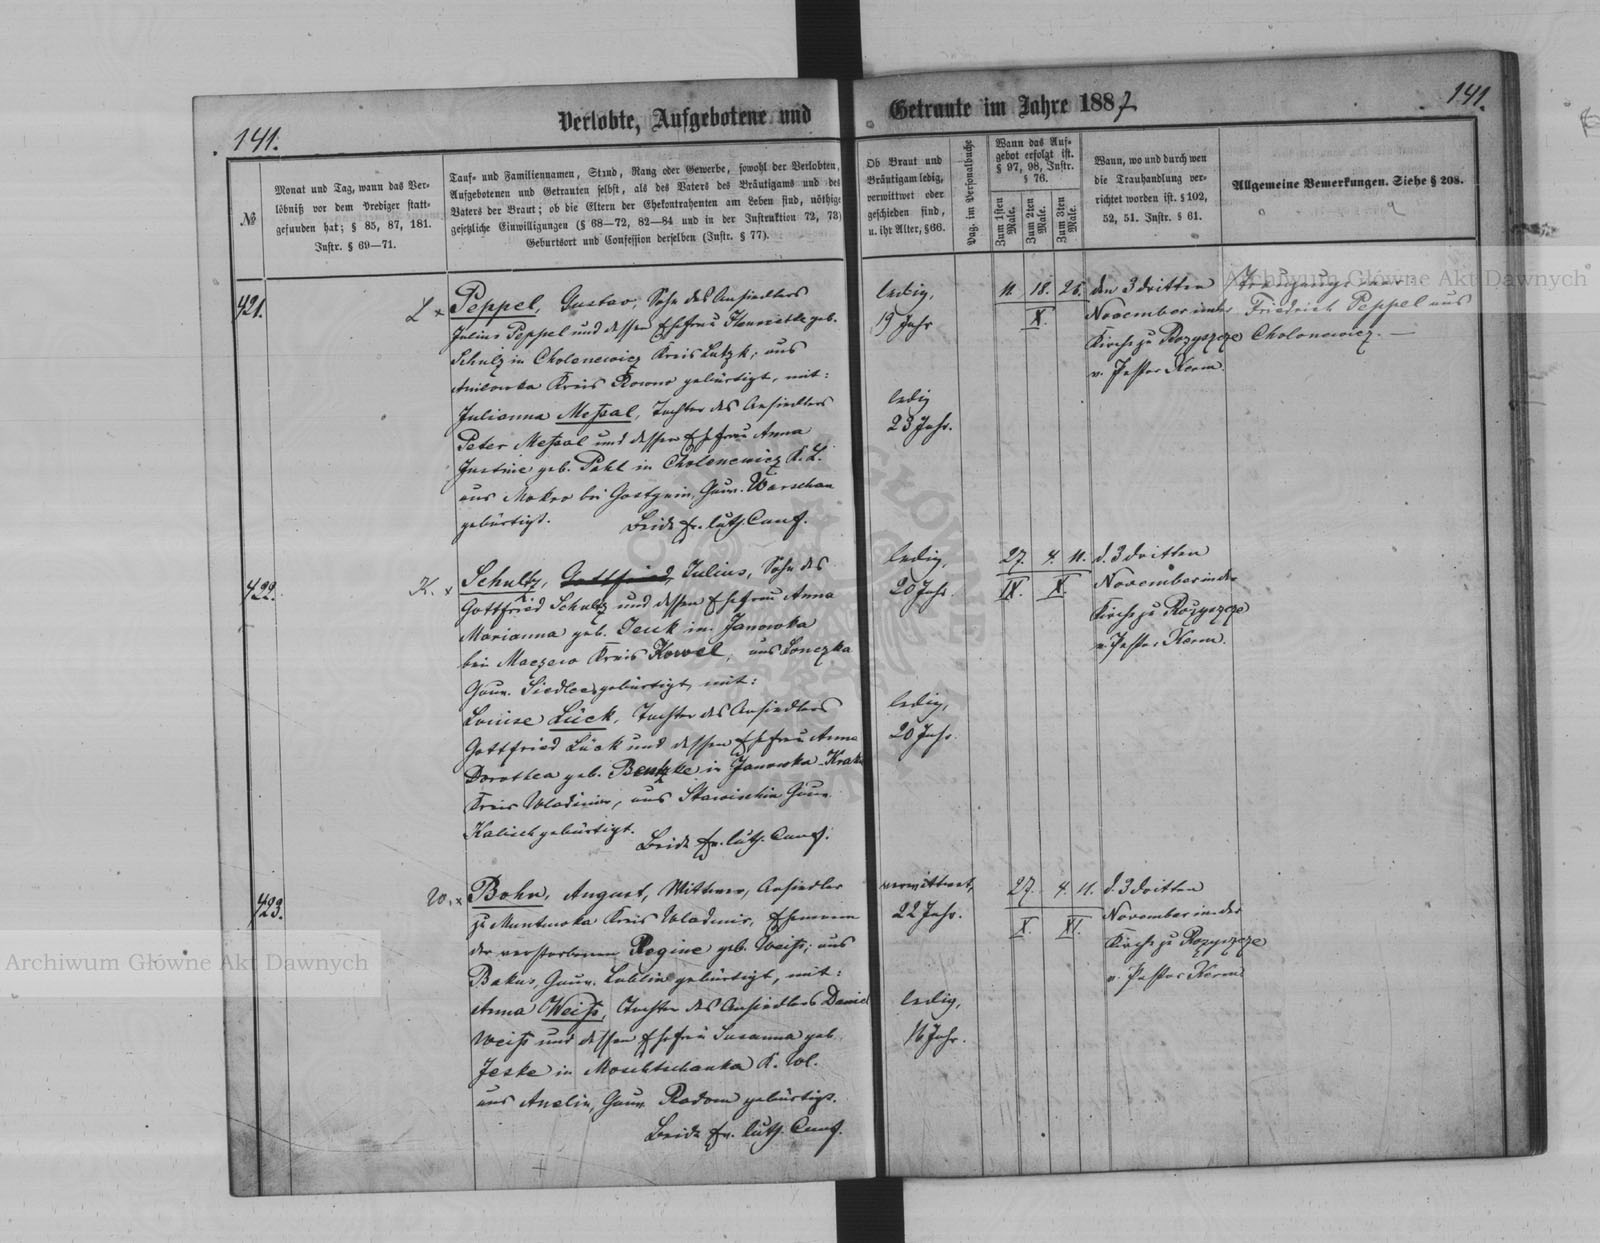 Verlobte, Aufgebotene und Getraute im Jahre 1887
141.
141.
№
Monat und Tag, wann das Ver-
löbniß vor dem Prediger statt-
gefunden hat; § 85, 87, 181.
Instr. § 69—71.
Tauf- und Familiennamen, Stand, Rang oder Gewerbe, sowohl der Verlobten,
Aufgebotenen und Getrauten selbst, als des Vaters des Bräutigams und des
Vaters der Braut; ob die Eltern der Ehekontrahenten am Leben sind, nöthige
gesetzliche Einwilligungen (§ 68—72, 82—84 und in der Instruktion 72, 73)
Geburtsort und Confession derselben (Instr. § 77).
Ob Braut und
Bräutigam ledig,
verwittwet oder
geschieden sind,
u. ihr Alter, § 66.
Pag. im Personalbuche
Wann das Auf-
gebot erfolgt ist.
§ 97, 98, Instr.
§ 76.
Zum 1sten Male.
Zum 2ten Male.
Zum 3ten Male.
Wann, wo und durch wen
die Trauhandlung ver-
richtet worden ist. § 102,
52, 51. Instr. § 61.
Allgemeine Bemerkungen. Siehe § 208.
421.
L x
Peppel, Gustav, Sohn des Ansiedlers
Julius Peppel und dessen Ehefrau Henriette geb.
Schulz in Cholenewicz Kreis Lutzk, aus
Kreis Rowno gebürtigt, mit:
Julianna Meßal, Tochter des Ansiedlers
Peter Meßal und dessen Ehefrau Anna
Justine geb. Pahl in Cholenewicz K. L.
aus Mokro bei Gostynin, Gouv. Warschau
gebürtigt. Beide ev. luth. Conf.
ledig,
19 Jahr
ledig
23 Jahr.
11. 18. 25.
X.
den 3 dritten
November in der
Kirche zu Rozyszcze
v. Pastor Kerm.
Friedrich Peppel aus
Cholonewicz. —
422.
K. x
Schultz, Gottfried, Julius, Sohn des
Gottfried Schultz und dessen Ehefrau Anna
Marianna geb. Jeuk in Janowka
bei Maczewo Kreis Kowel, aus Lonczka
Gouv. Siedlce gebürtigt, mit:
Louise Lück, Tochter des Ansiedlers
Gottfried Lück und dessen Ehefrau Anna
Dorothea geb. in Janowka-Krak
Kreis Wladimir, aus Stawischin Gouv.
Kalisch gebürtigt.
Beide ev. luth. Conf.
ledig,
20 Jahr.
ledig,
20 Jahr.
27. 4. 11.
IX. X.
d. 3 dritten
November in der
Kirche zu Rozyszcze
v. Pastor Kerm.
423.
W. x
Bohn, August, Wittwer, Ansiedler
zu Kreis Wladimir, Ehemann
der verstorbenen Regine geb. Weiß, aus
Bakus, Gouv. Lublin gebürtigt, mit:
Anna Weiß, Tochter des Ansiedlers Daniel
Weiß und dessen Ehefrau Susanna geb.
Jeske in Moschtschanka K. Wl.
aus Anelin, Gouv. Radom gebürtigt.
Beide ev. luth. Conf.
verwittwet,
22 Jahr.
ledig,
16 Jahr.
27. 4. 11.
X. XI.
d. 3 dritten
November in der
Kirche zu Rozyszcze
v. Pastor Kerm
Archiwum Główne Akt Dawnych
Archiwum Główne Akt Dawnych